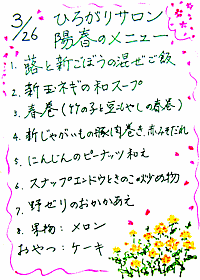 3/26 ひろがりサロン
陽春のメニュー
1. 蕗と新ごぼうの混ぜご飯
2. 新玉ネギの和スープ
3. 春巻(竹の子と豆もやしの春巻)
4. 新じゃがいもの豚肉巻き、赤みそだれ
5. にんじんのピーナッツ和え
6. スナップエンドウときのこの炒め物
7. 野ゼリのおかかあえ
8. 果物:メロン
おやつ:ケーキ